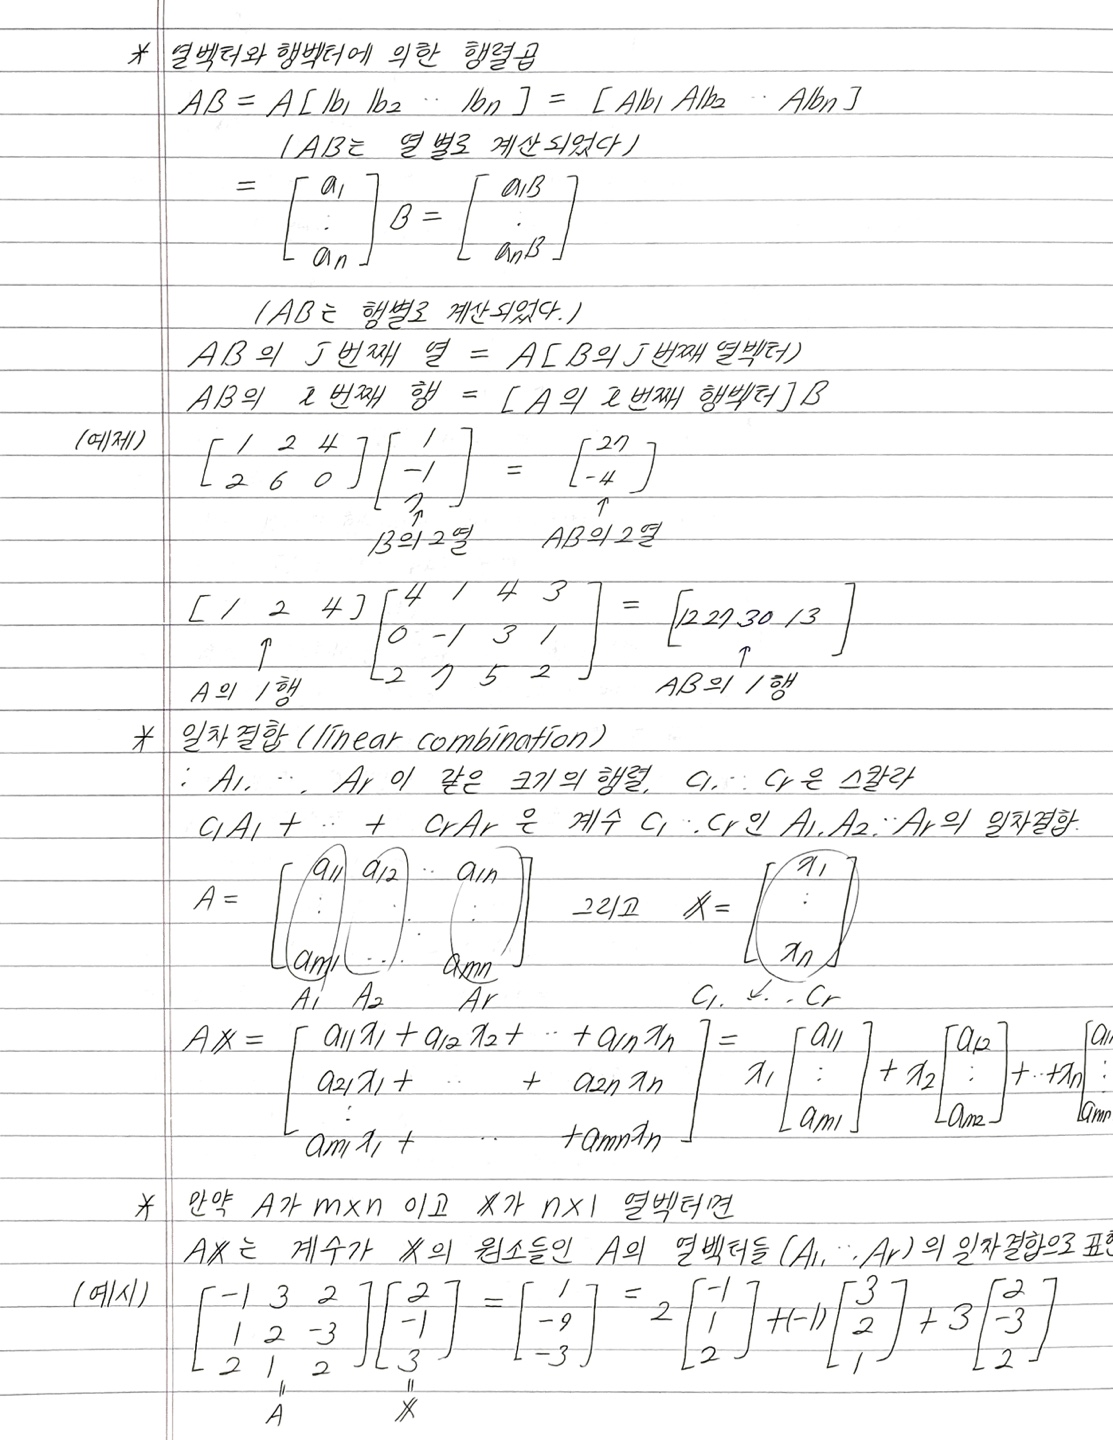 * 열벡터와 행벡터에 의한 행렬곱
AB = A[ b₁ b₂ ·· bₙ ] = [ Ab₁ Ab₂ ·· Abₙ ]
(AB는 열별로 계산되었다)
= [ a₁ : aₙ ] B = [ a₁B : aₙB ]
(AB는 행별로 계산되었다.)
AB의 J번째 열 = A[B의 J번째 열벡터)
AB의 i번째 행 = [A의 i번째 행벡터]B
(예제) [ 1 2 4 / 2 6 0 ] [ 1 / -1 / 7 ] = [ 27 / -4 ]
↑ ↑
B의 2열 AB의 2열
[ 1 2 4 ] [ 4 1 4 3 / 0 -1 3 1 / 2 7 5 2 ] = [ 12 27 30 13 ]
↑ ↑
A의 1행 AB의 1행
* 일차결합(linear combination)
: A₁. ··. Aᵣ이 같은 크기의 행렬. C₁. ·· Cᵣ은 스칼라
C₁A₁ + ·· + CᵣAᵣ은 계수 C₁ ··. Cᵣ인 A₁. A₂. ·· Aᵣ의 일차결합.
A = [ a₁₁ a₁₂ ·· a₁ₙ / : : : / aₘ₁ ·· aₘₙ ] 그리고 x = [ x₁ : xₙ ]
A₁ A₂ Aᵣ C₁. ↙·. Cᵣ
Ax = [ a₁₁x₁ + a₁₂x₂ + ·· + a₁ₙxₙ / a₂₁x₁ + ·· + a₂ₙxₙ / : / aₘ₁x₁ + ·· + aₘₙxₙ ] = x₁ [ a₁₁ : aₘ₁ ] + x₂ [ a₁₂ : aₘ₂ ] + ·· + xₙ [ a₁ₙ : aₘₙ
* 만약 A가 m×n 이고 x가 n×1 열벡터면
Ax는 계수가 x의 원소들인 A의 열벡터들(A₁, ··. Aᵣ)의 일차결합으로 표현
(예시) [ -1 3 2 / 1 2 -3 / 2 1 2 ] [ 2 / -1 / 3 ] = [ 1 / -9 / -3 ] = 2 [ -1 / 1 / 2 ] + (-1) [ 3 / 2 / 1 ] + 3 [ 2 / -3 / 2 ]
= =
A x